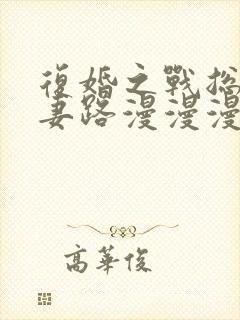 復婚之戰總
妻路漫漫漫
高華俊